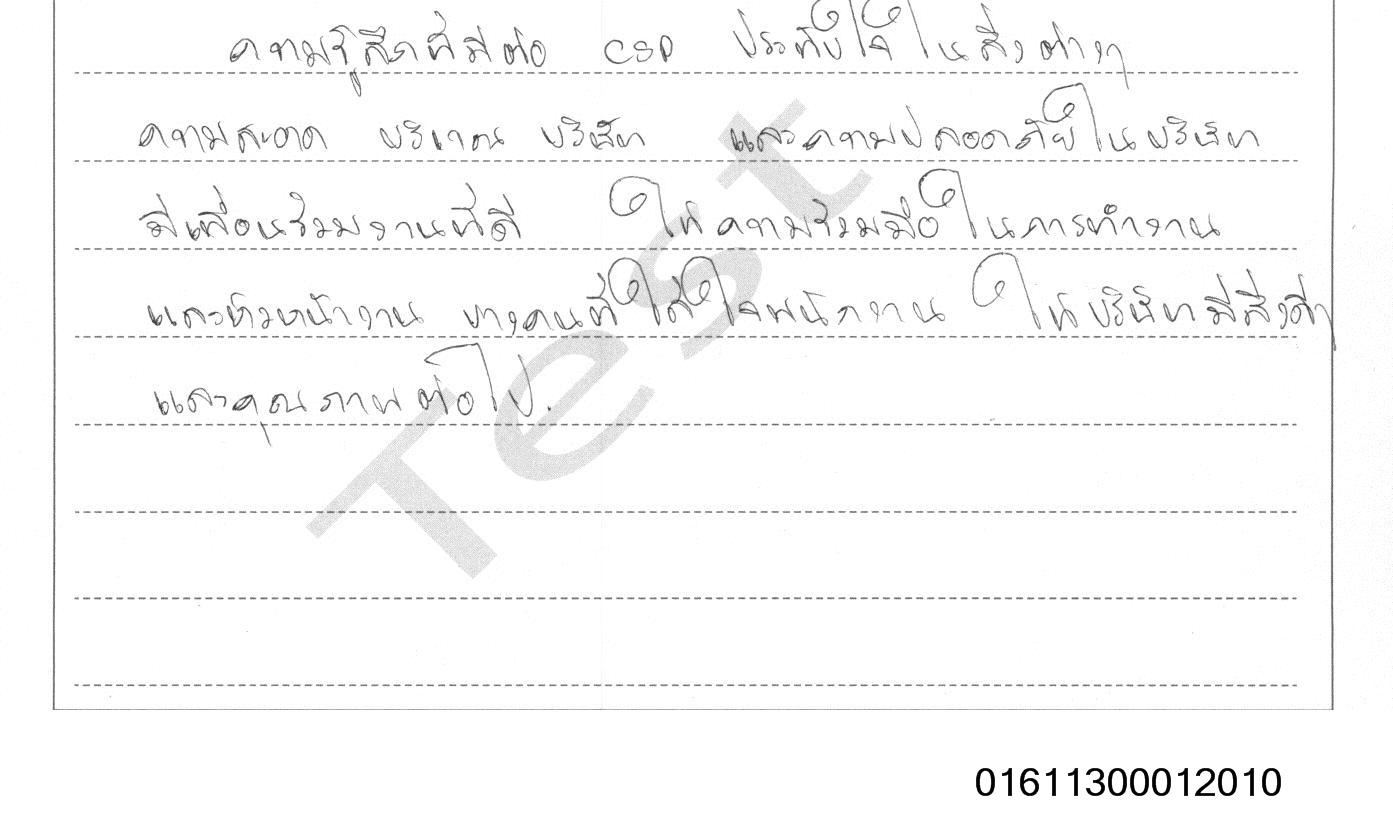 ความรู้สึกที่มีต่อ CSP ประทับใจในสิ่งต่างๆ
ความสะอาด บริเวณ บริษัท และความปลอดภัยในบริษัท
มีเพื่อนร่วมงานที่ดี ให้ความร่วมมือในการทำงาน
และหัวหน้างาน บางคนที่ใส่ใจพนักงาน ให้บริษัทมีสิ่งดีๆ
และคุณภาพต่อไป.
Test
01611300012010